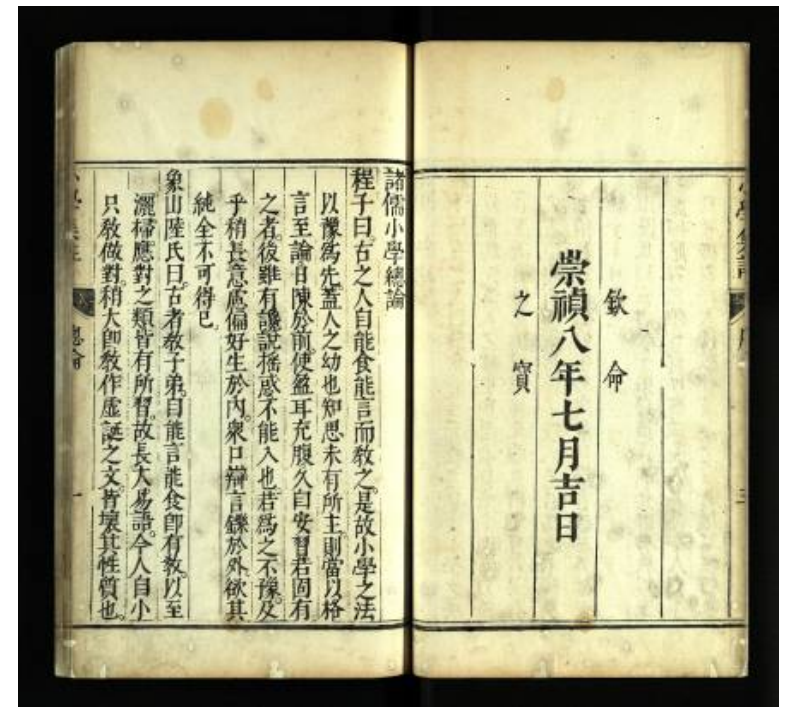 小學集註
三
欽命
崇禎八年七月吉日
之寶
諸儒小學總論
程子曰。古之人自能食能言而教之。是故小學之法
以豫爲先。蓋人之幼也知思未有所主。則當以格
言至論日陳於前。使盈耳充腹久自安習若固有
之者。後雖有讒說搖惑不能入也。若爲之不豫。及
乎稍長意慮偏好生於內。衆口辯言鑠於外欲其
純全不可得已。
象山陸氏曰。古者教子弟。自能言能食卽有教。以至
灑掃應對之類皆有所習。故長大易語。今人自小
只教做對。稍大卽教作虛誕之文。皆壞其性質也。
總論
一